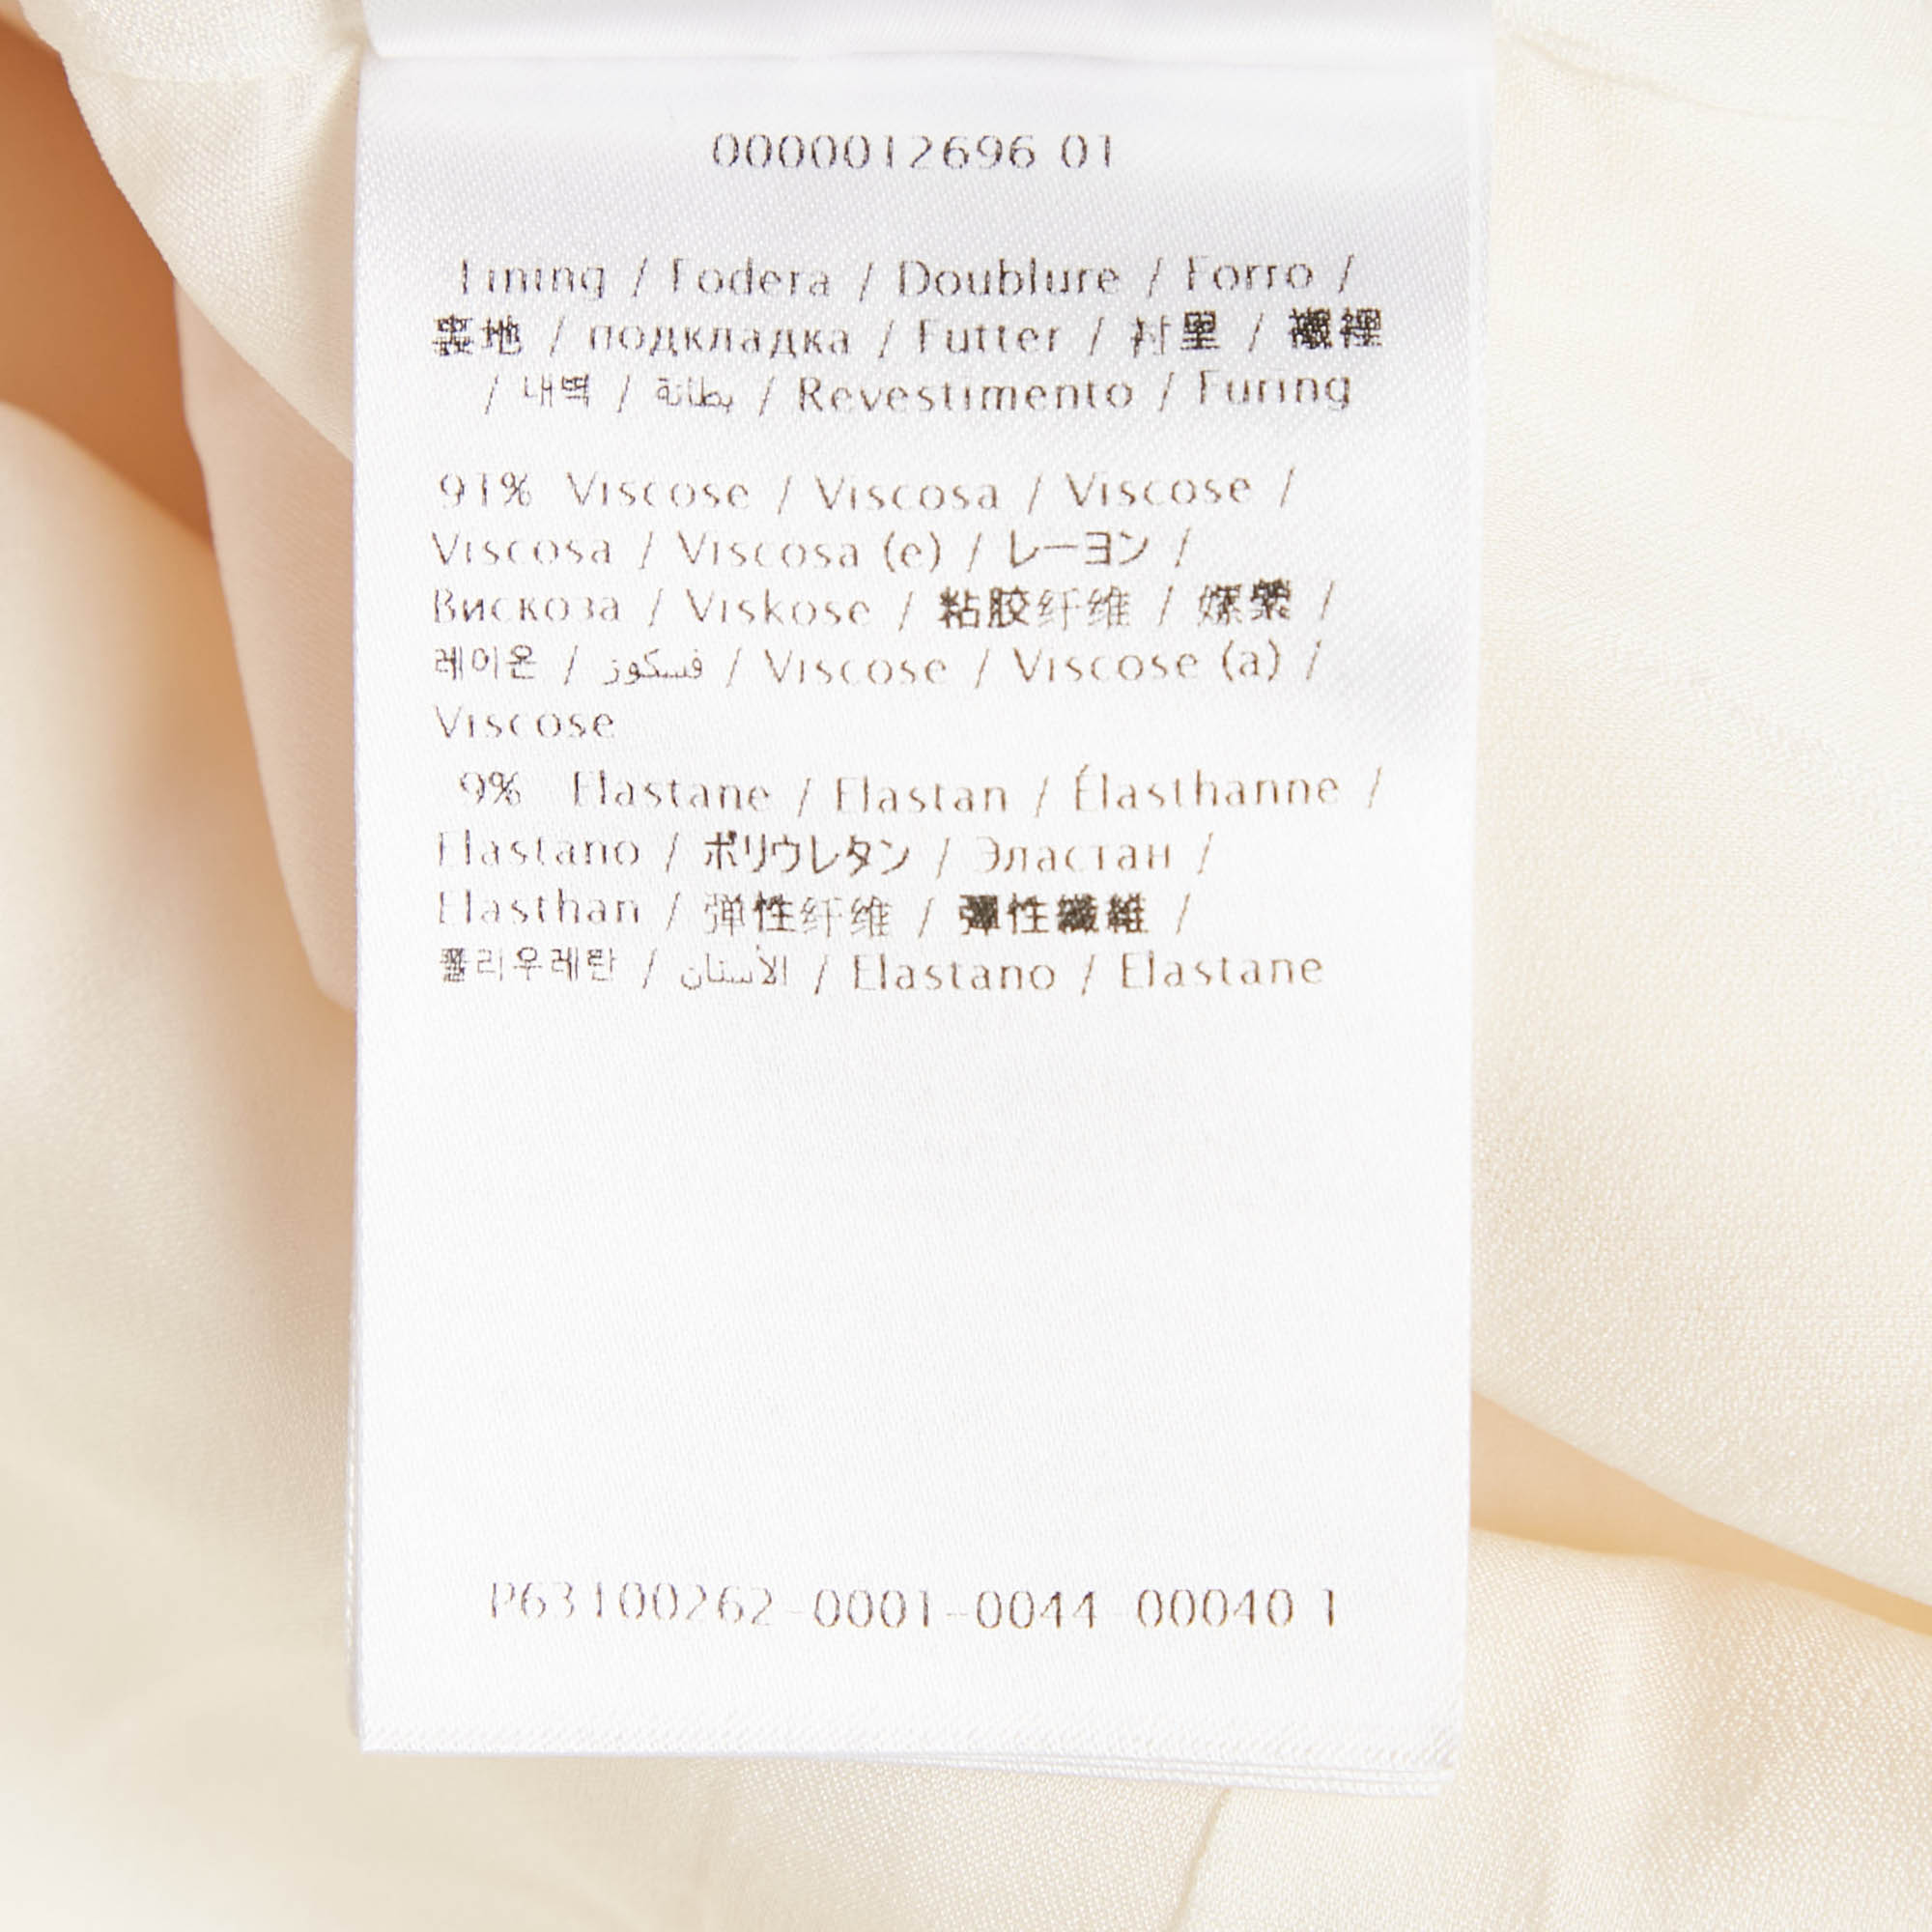 0000012696 01
Lining / Fodera / Doublure / Forro /
裏地 / подкладка / Futter / 衬里 / 襯裡
/ 내벽 / بطانة / Revestimento / Furing
91% Viscose / Viscosa / Viscose /
Viscosa / Viscosa (e) / レーヨン /
Вискоза / Viskose / 粘胶纤维 / 嫘縈 /
레이온 / فسكوز / Viscose / Viscose (a) /
Viscose
9% Elastane / Elastan / Élasthanne /
Elastano / ポリウレタン / Эластан /
Elasthan / 弹性纤维 / 彈性纖維 /
폴리우레탄 / الأستان / Elastano / Elastane
P63100262-0001-0044-00040 1